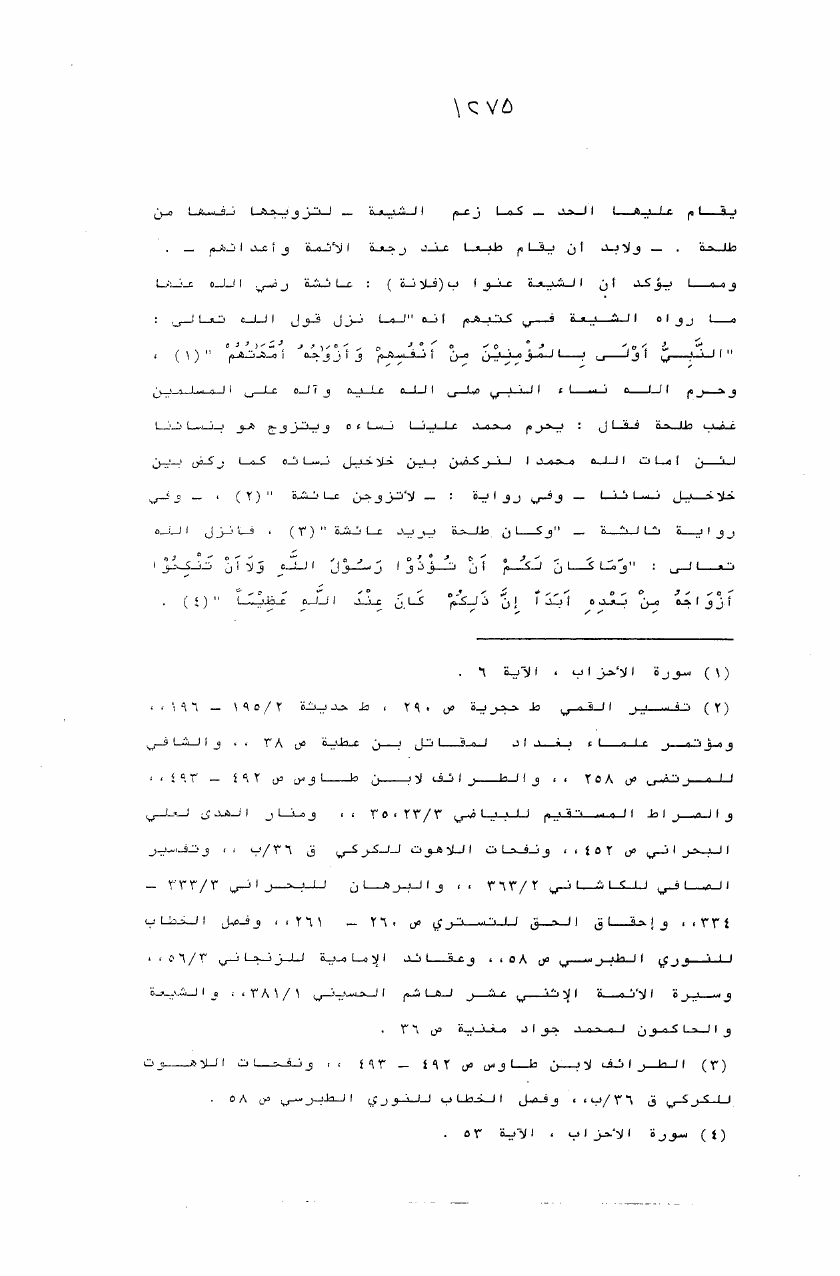 ١٢٧٥
يقام عليها الحد ـ كما زعم الشيعة ـ لتزويجها نفسها من
طلحة . ـ ولابد أن يقام طبعا عند رجعة الأئمة وأعدائهم ـ .
ومما يؤكد أن الشيعة عنوا ب(فلانة) : عائشة رضي الله عنها
ما رواه الشيعة في كتبهم انه "لما نزل قول الله تعالى :
"النَّبِيُّ أَوْلَى بِالمُؤْمِنِيْنَ مِنْ أَنْفُسِهِمْ وَأَزْوَاجُهُ أُمَّهَاتُهُمْ" (١) ،
وحرم الله نساء النبي صلى الله عليه وآله على المسلمين
غضب طلحة فقال : يحرم محمد علينا نساءه ويتزوج هو بنسائنا
لئن أمات الله محمدا لنركضن بين خلاخيل نسائه كما ركض بين
خلاخيل نسائنا ـ وفي رواية : ـ لأتزوجن عائشة "(٢) ، ـ وفي
رواية ثالثة ـ "وكان طلحة يريد عائشة"(٣) ، فانزل الله
تعالى : "وَمَا كَانَ لَكُمْ أَنْ تُؤْذُوْا رَسُوْلَ اللَّهِ وَلَا أَنْ تَنْكِحُوْا
أَزْوَاجَهُ مِنْ بَعْدِهِ أَبَدَاً إِنَّ ذَلِكُمْ كَانَ عِنْدَ اللَّهِ عَظِيْمَاً "(٤) .
(١) سورة الأحزاب ، الآية ٦ .
(٢) تفسير القمي ط حجرية ص ٢٩٠ ، ط حديثة ١٩٥/٢ ـ ١٩٦،،
ومؤتمر علماء بغداد لمقاتل بن عطية ص ٣٨ ،، والشافي
للمرتضى ص ٢٥٨ ،، والطرائف لابن طاوس ص ٤٩٢ ـ ٤٩٣،،
والصراط المستقيم للبياضي ٢٣/٣، ٣٥ ،، ومنار الهدى لعلي
البحراني ص ٤٥٢،، ونفحات اللاهوت للكركي ق ٣٦/ب ،، وتفسير
الصافي للكاشاني ٣٦٣/٢ ،، والبرهان للبحراني ٣٣٣/٣ ـ
٣٣٤،، وإحقاق الحق للتستري ص ٢٦٠ ـ ٢٦١،، وفصل الخطاب
للنوري الطبرسي ص ٥٨،، وعقائد الإمامية للزنجاني ٥٦/٣،،
وسيرة الأئمة الإثني عشر لهاشم الحسيني ٣٨١/١،، والشيعة
والحاكمون لمحمد جواد مغنية ص ٣٦ .
(٣) الطرائف لابن طاوس ص ٤٩٢ ـ ٤٩٣ ،، ونفحات اللاهوت
للكركي ق ٣٦/ب،، وفصل الخطاب للنوري الطبرسي ص ٥٨ .
(٤) سورة الأحزاب ، الآية ٥٣ .